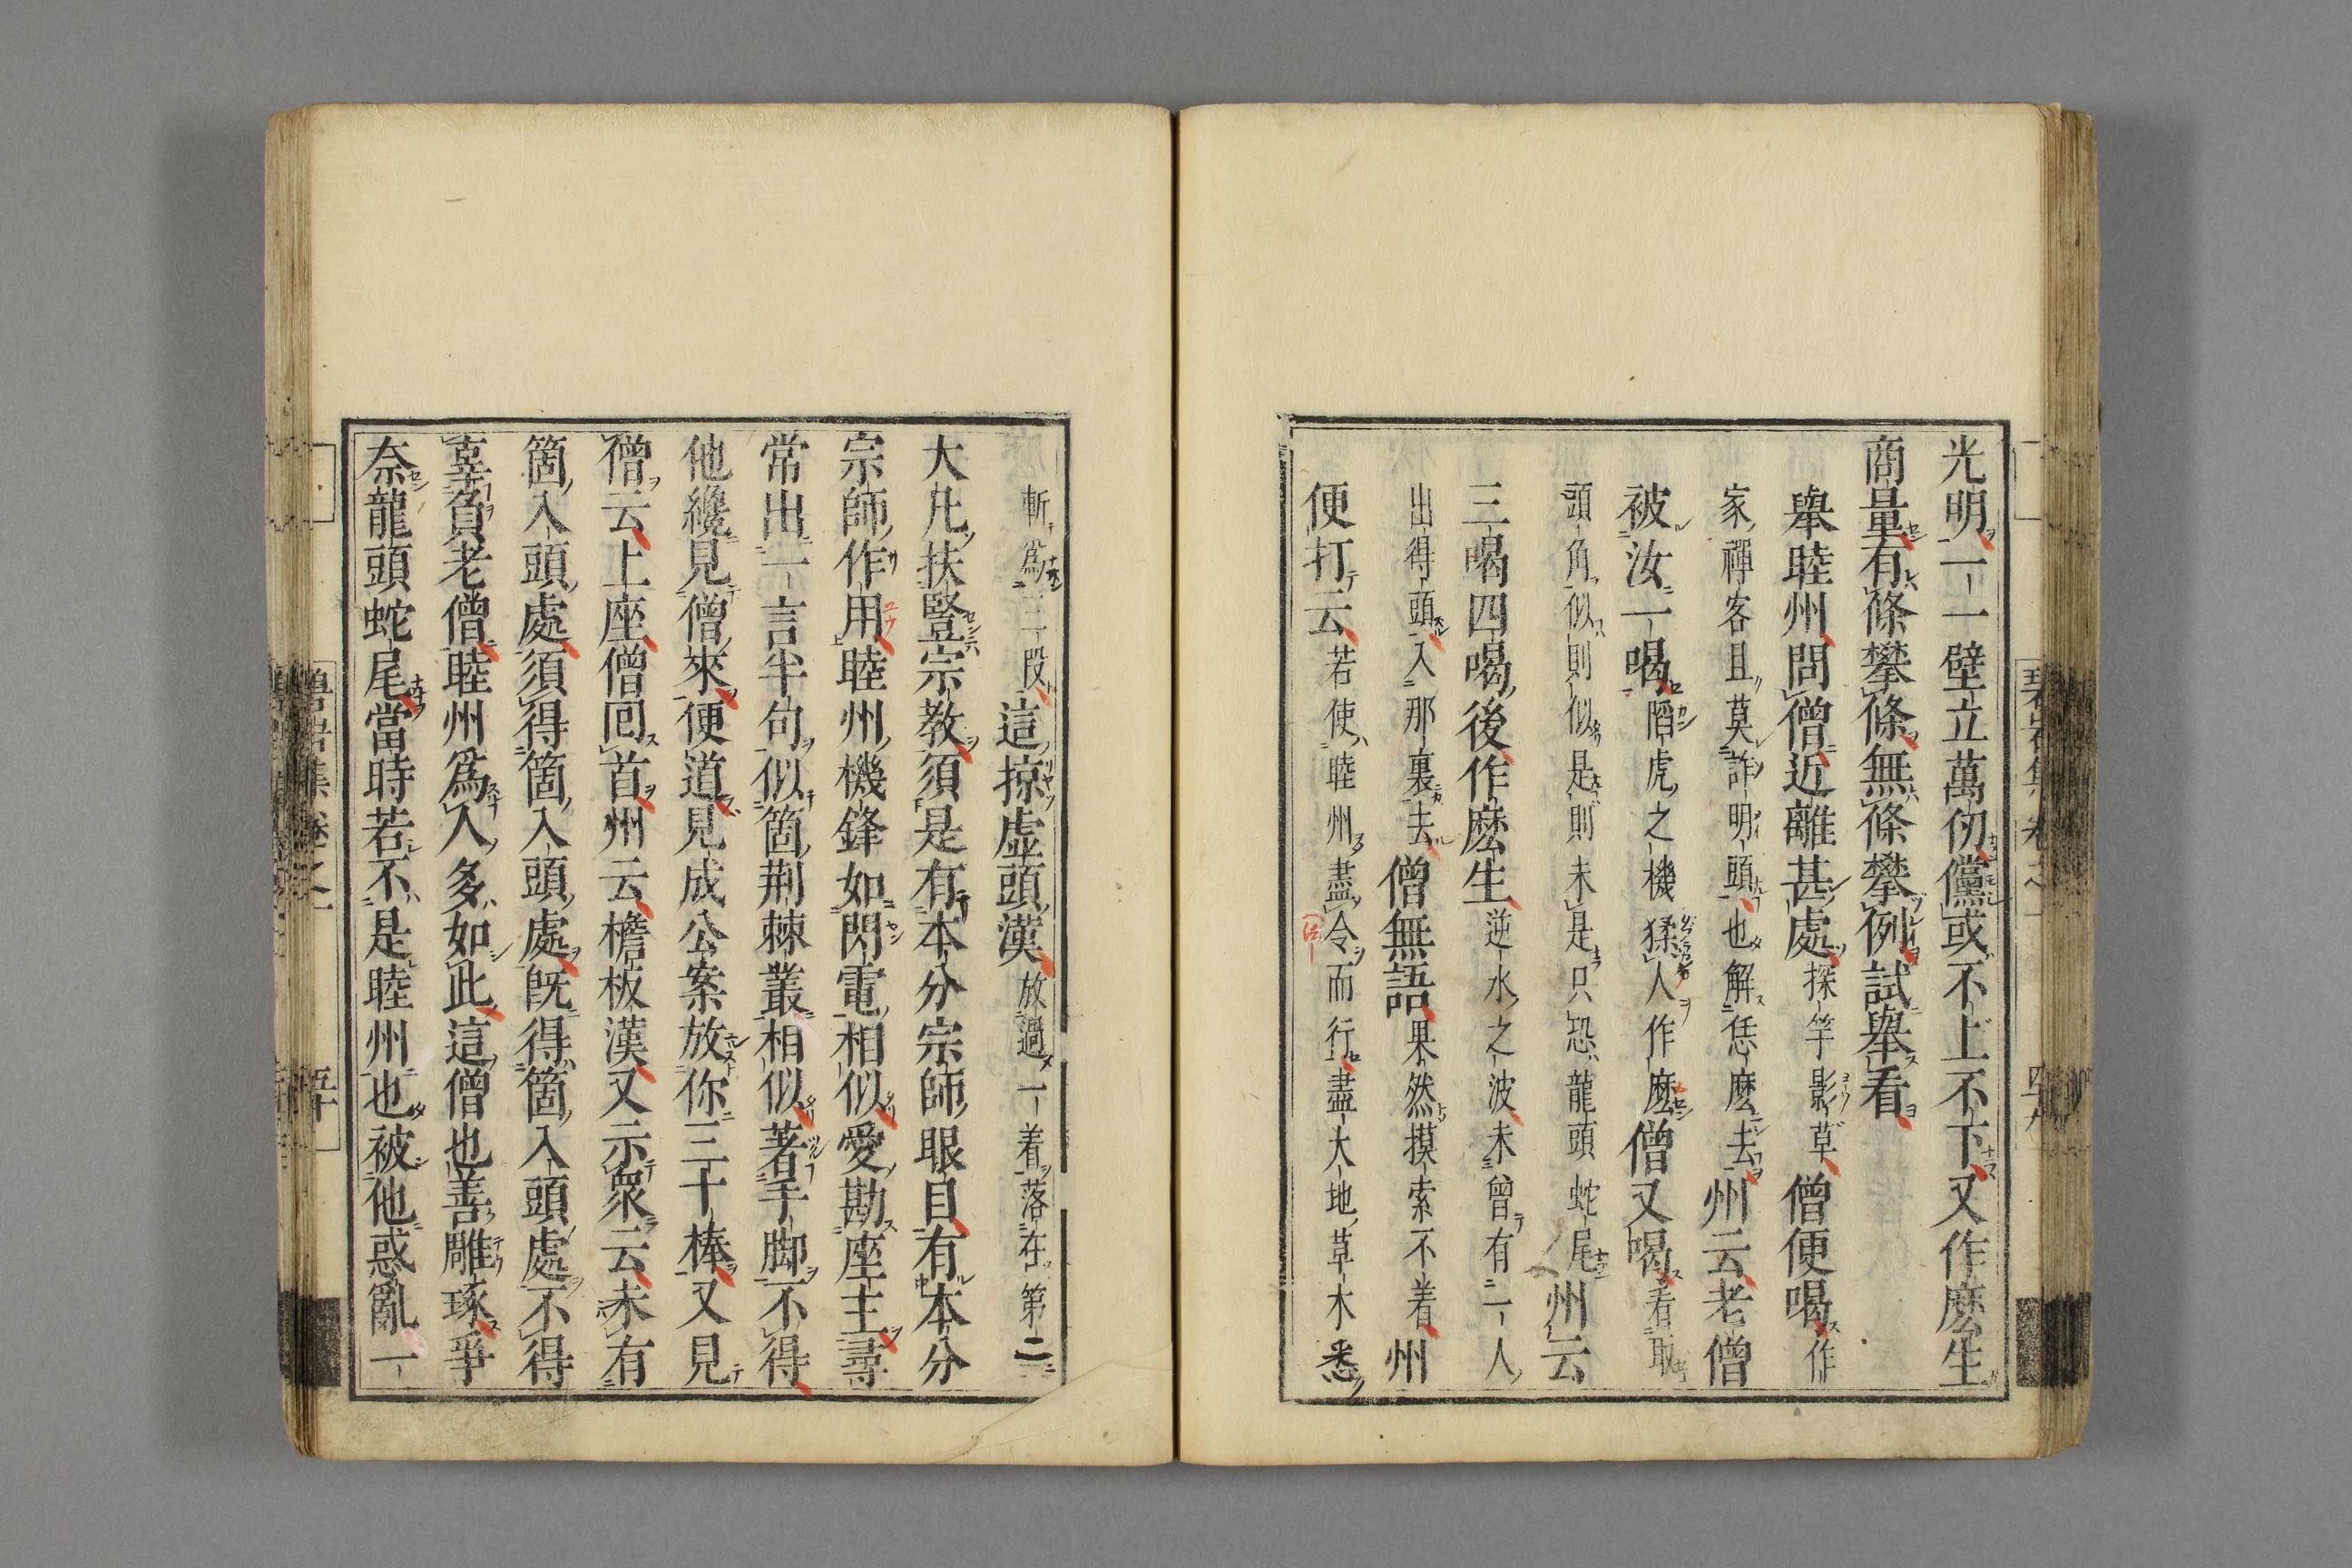 光明一一壁立萬仞儻或不上不下又作麽生
商量有條攀條無條攀例試擧看
擧睦州問僧近離甚處探竿影草僧便喝作
家禪客且莫詐明頭也解恁麽去州云老僧
被汝一喝陷虎之機猱人作麽僧又喝看取
頭角似則似是則未是只恐龍頭蛇尾州云
三喝四喝後作麽生逆水之波未曾有一人
出得頭入那裏去僧無語果然摸索不着州
便打云若使睦州盡令而行盡大地草木悉
斬爲三段這掠虚頭漢放過一着落在第二
大凡扶豎宗教須是有本分宗師眼目有本分
宗師作用睦州機鋒如閃電相似愛勘座主尋
常出一言半句似箇荆棘叢相似著手脚不得
他纔見僧來便道見成公案放你三十棒又見
僧云上座僧回首州云檐板漢又示衆云未有
箇入頭處須得箇入頭處既得箇入頭處不得
辜負老僧睦州爲人多如此這僧也善雕琢爭
奈龍頭蛇尾當時若不是睦州也被他惑亂一